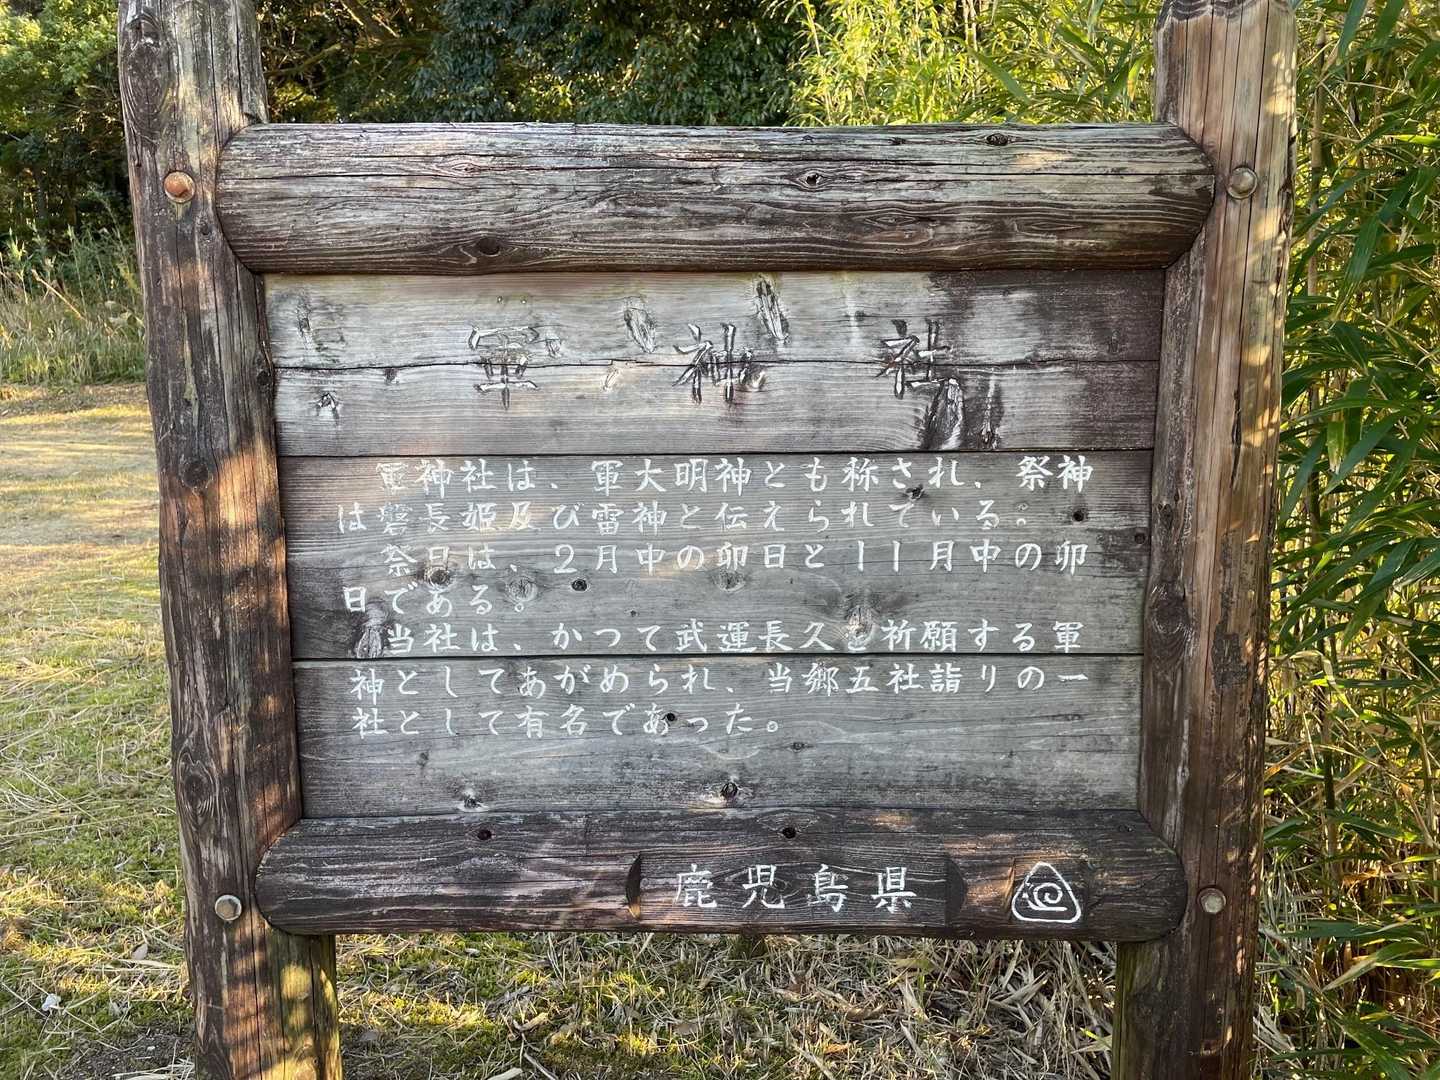 軍神社
軍神社は、軍大明神とも称され、祭神
は磐長姫及び雷神と伝えられている。
祭日は、2月中の卯日と11月中の卯
日である。
当社は、かつて武運長久を祈願する軍
神としてあがめられ、当郷五社詣りの一
社として有名であった。
鹿児島県